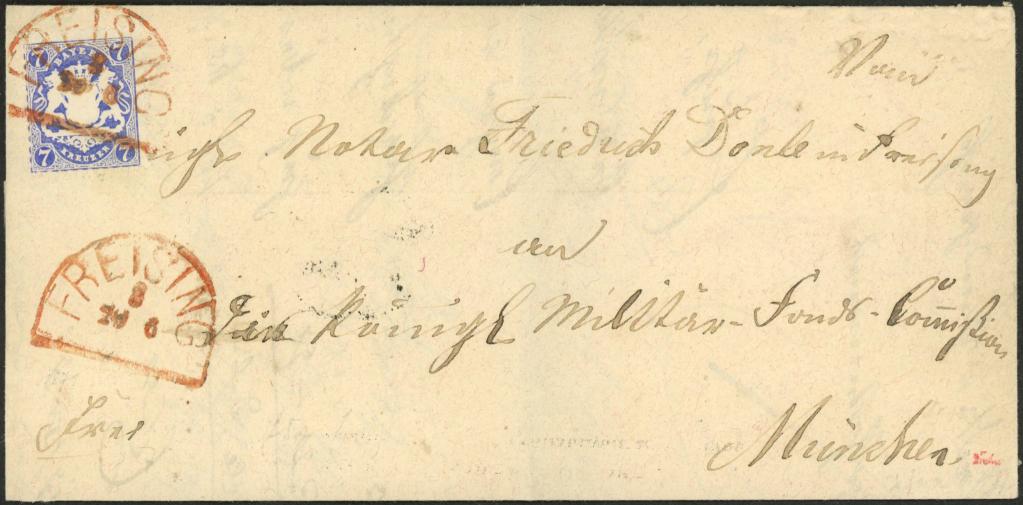 FREISING
8
7 BAYERN 7
7 KREUZER 7
Vom
Notar Friedrich Donle in Freising
an
die Königl Militär-Fonds-Commißion
FREISING
8
6
Frei
München